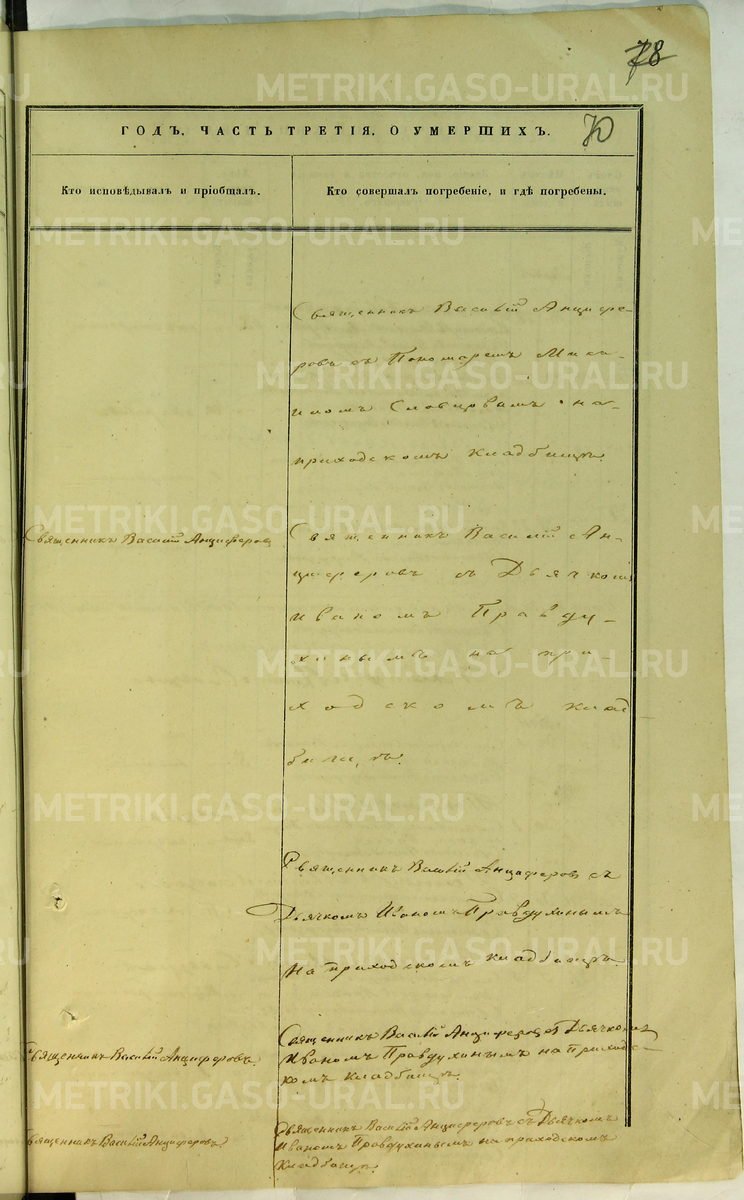 78
ГОДЪ, ЧАСТЬ ТРЕТІЯ, О УМЕРШИХЪ.
70
Кто исповѣдывалъ и пріобщалъ.
Кто совершалъ погребеніе, и гдѣ погребены.
Священникъ Василій Анцифе-
ровъ съ Пономаремъ
на-
приходскомъ кладбищѣ.
Священникъ Василій Анциферовъ
Священникъ Василій Ан-
циферовъ съ Дьячкомъ
Иваномъ Правду-
хинымъ на при-
ходскомъ клад
бищѣ.
Священникъ Василій Анциферовъ съ
Дьячкомъ Иваномъ Правдухинымъ
на приходскомъ кладбищѣ.
Священникъ Василій Анциферовъ.
Священникъ Василій Анциферовъ съ Дьячкомъ
Иваномъ Правдухинымъ на приходс-
комъ кладбищѣ.
Священникъ Василій Анциферовъ.
Священникъ Василій Анциферовъ съ Дьячкомъ
Иваномъ Правдухинымъ на приходскомъ
кладбищѣ.
METRIKI.GASO-URAL.RU